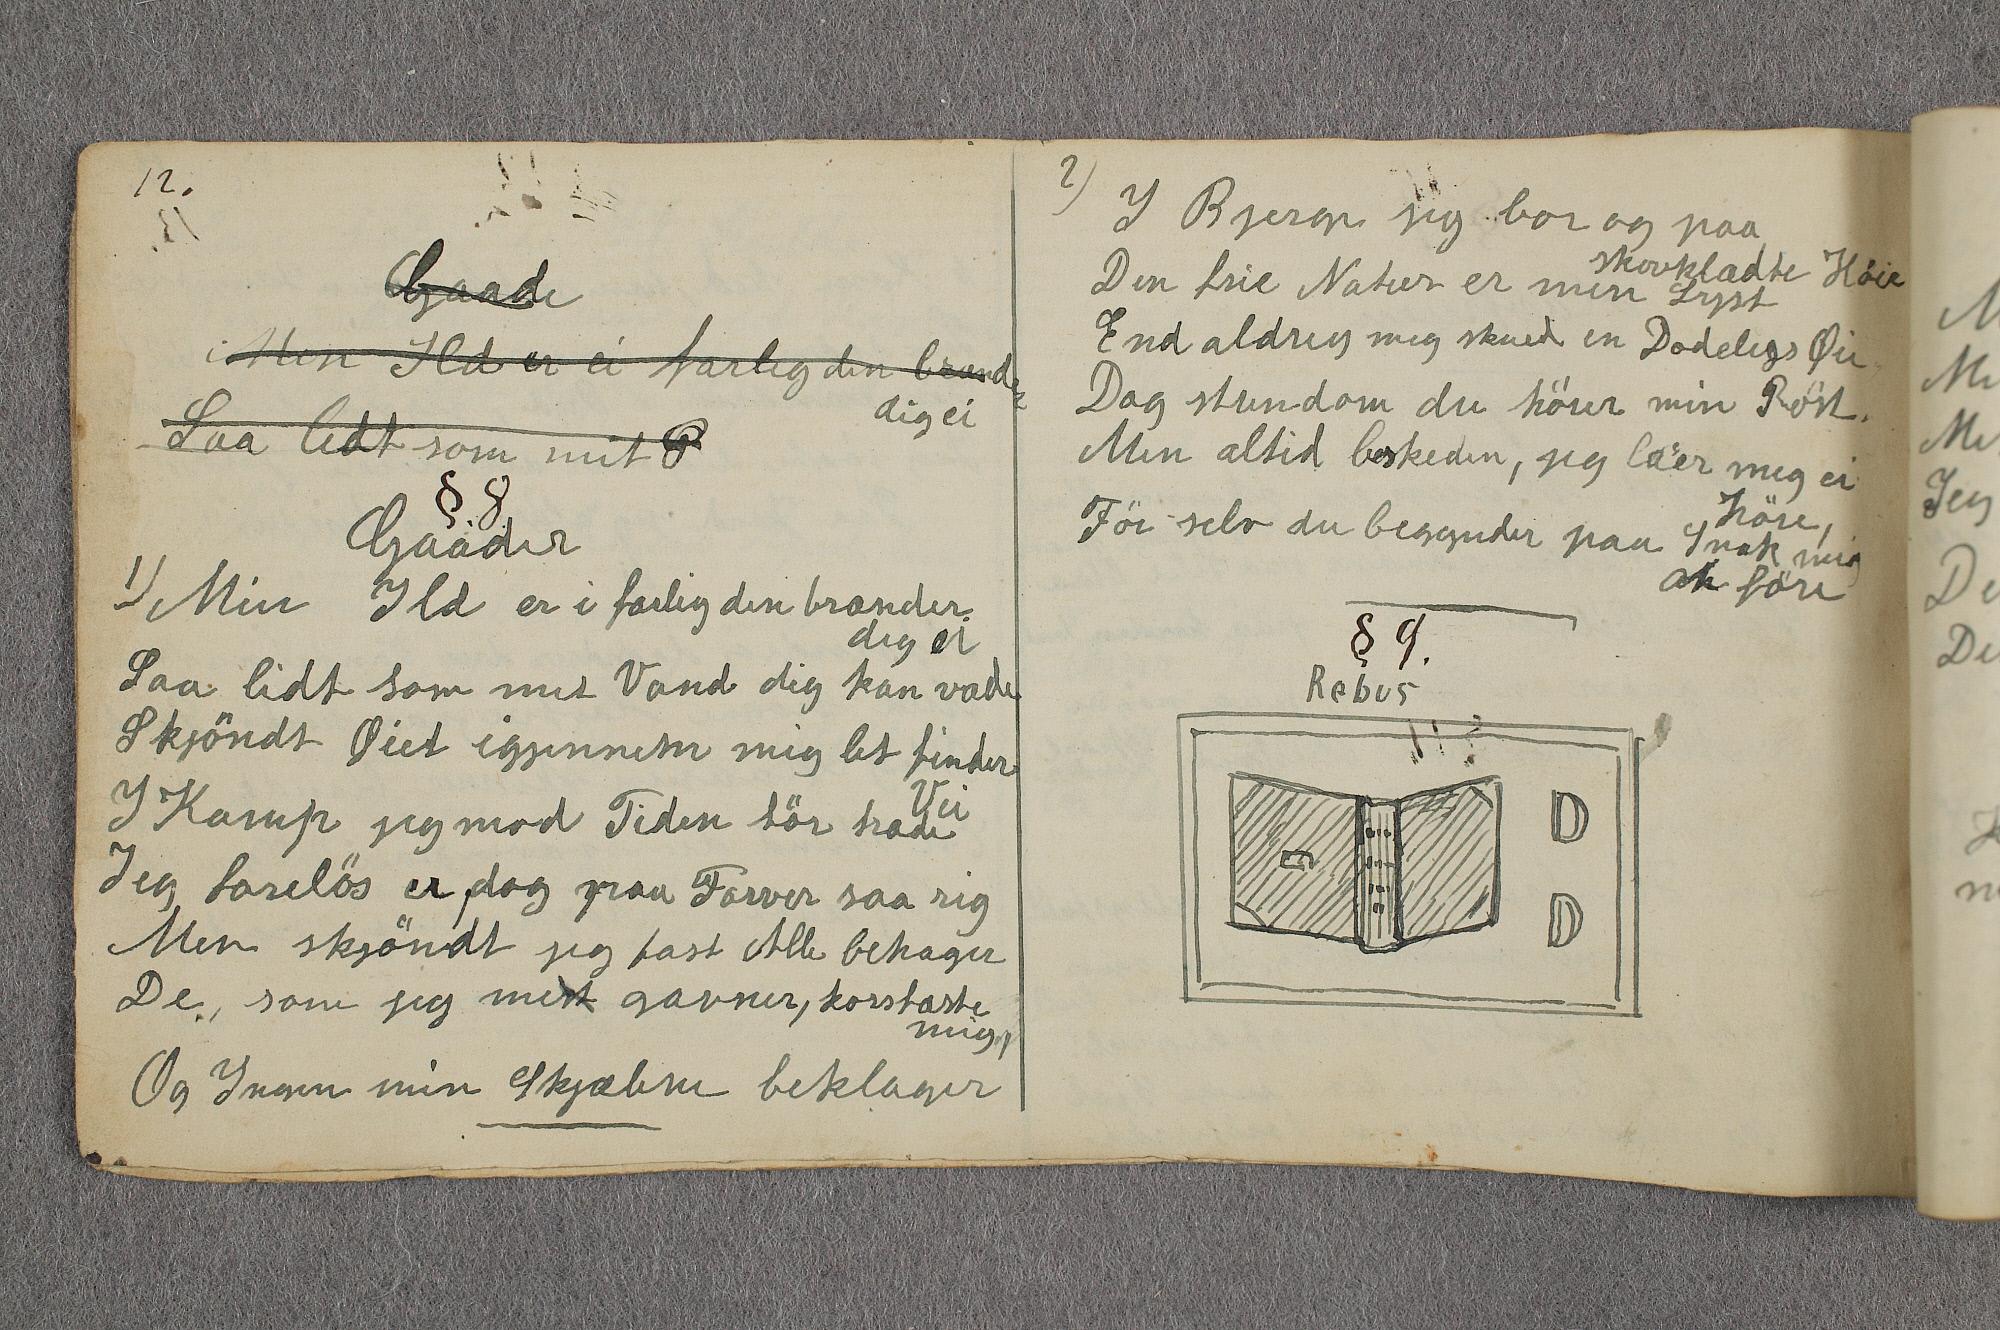 12.
Gaade
Min Ild er ei farlig den brænder
dig ei
Saa lidt som mit
§ 8
Gaader
1) Min Ild er i farlig den brænder
dig ei
Saa lidt som mit Vand dig kan væde
Skjöndt Øiet igjennem mig let finder
Vei
I Kamp jeg mod Tiden tör træde
Jeg farelös er, dog paa Farver saa rig
Men skjöndt jeg fast Alle behager
De, som jeg mest gavner, korsfæste
mig,
Og Ingen min Skjæbne beklager
2)
I Bjerge jeg bor og paa
skovklædte Höie
Den frie Natur er min Lyst
End aldrig mig skued en Dødeligs Øie
Dog stundom du hörer min Röst.
Men altid beskeden, jeg la'er mig ei
höre,
För selv du begynder paa Snak mig
at före
§ 9.
Rebus
D
D